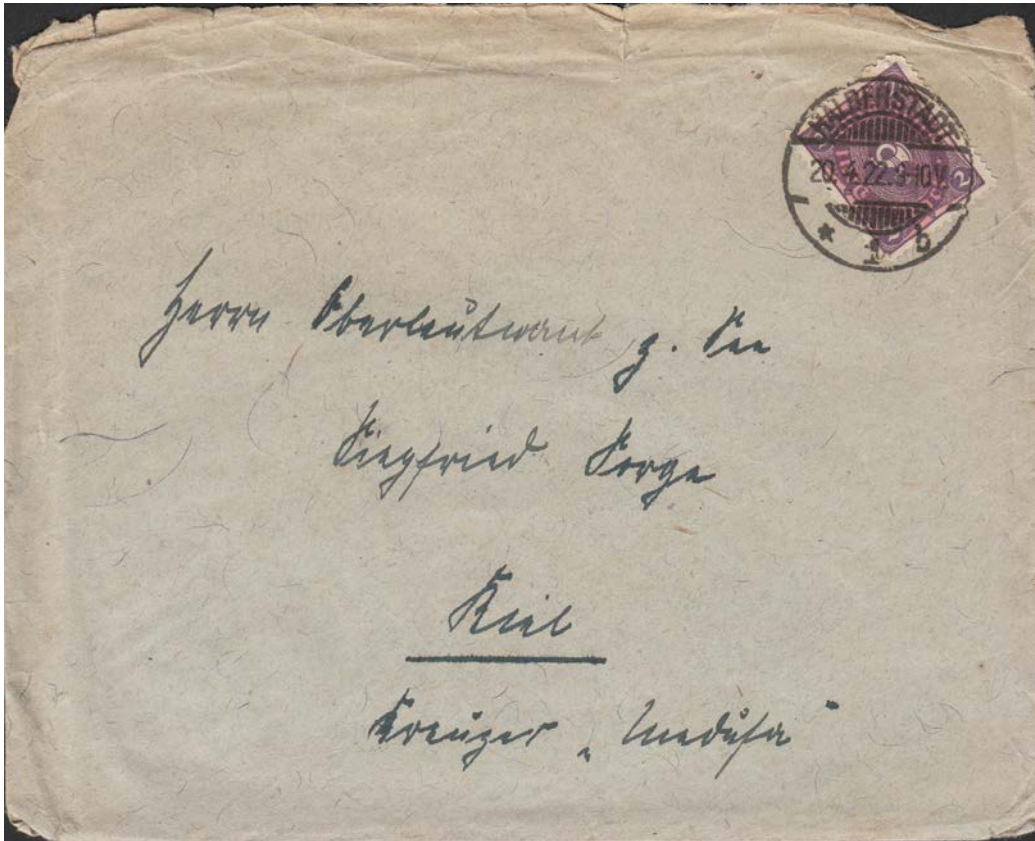 HALBERSTADT
20.4.22.9-10V.
* 1 b
2
Herrn Oberleutnant z. See
Siegfried Sorge
Kiel
Kreuzer „Medusa“